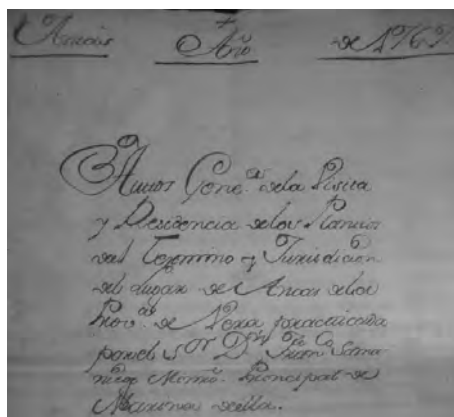 Antas Año de
Autos Gen.es de la Visita
y Residencia de los Plantios
del Termino y Jurisdicion
del Lugar de Antas de los
Prov.as de Vera practicada
por el S.or D.n Juan Sama
niego Mintro. Principal de
Marina de ella.